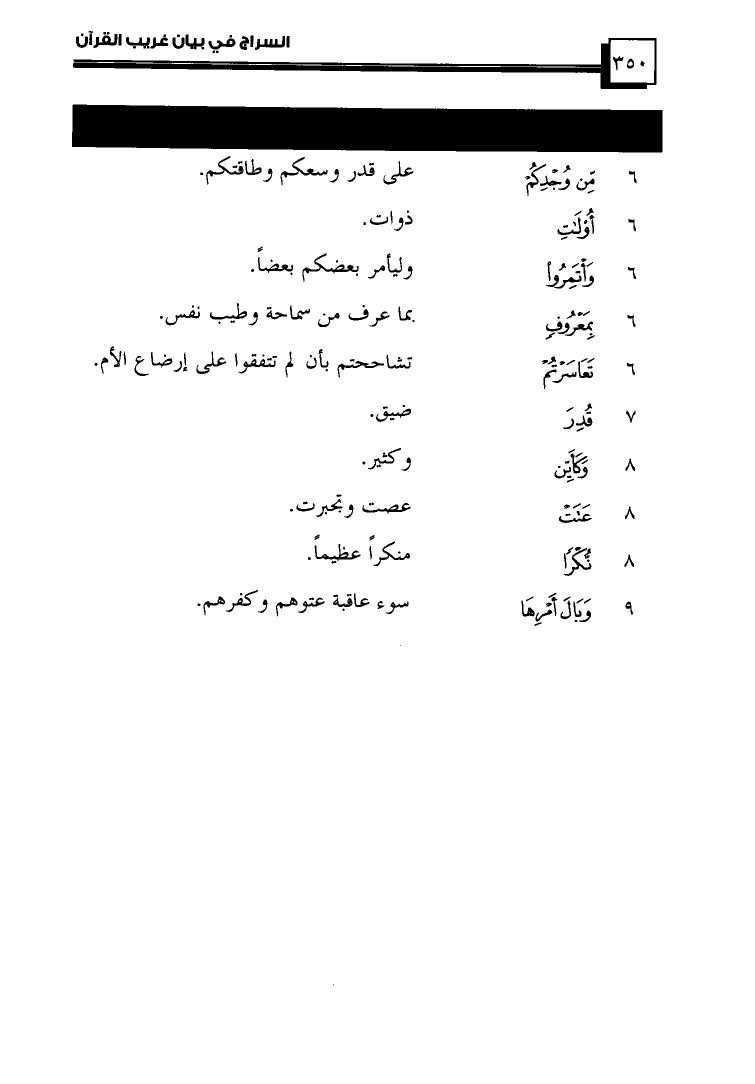 السراج في بيان غريب القرآن
٣٥٠
٦ مِّن وُجْدِكُمْ على قدر وسعكم وطاقتكم.
٦ أُوْلَٰتِ ذوات.
٦ وَأْتَمِرُواْ وليأمر بعضكم بعضاً.
٦ بِمَعْرُوفٍ بما عرف من سماحة وطيب نفس.
٦ تَعَاسَرْتُمْ تشاححتم بأن لم تتفقوا على إرضاع الأم.
٧ قُدِرَ ضيق.
٨ وَكَأَيِّن وكثير.
٨ عَتَتْ عصت وتجبرت.
٨ نُّكْرًا منكراً عظيماً.
٩ وَبَالَ أَمْرِهَا سوء عاقبة عتوهم وكفرهم.